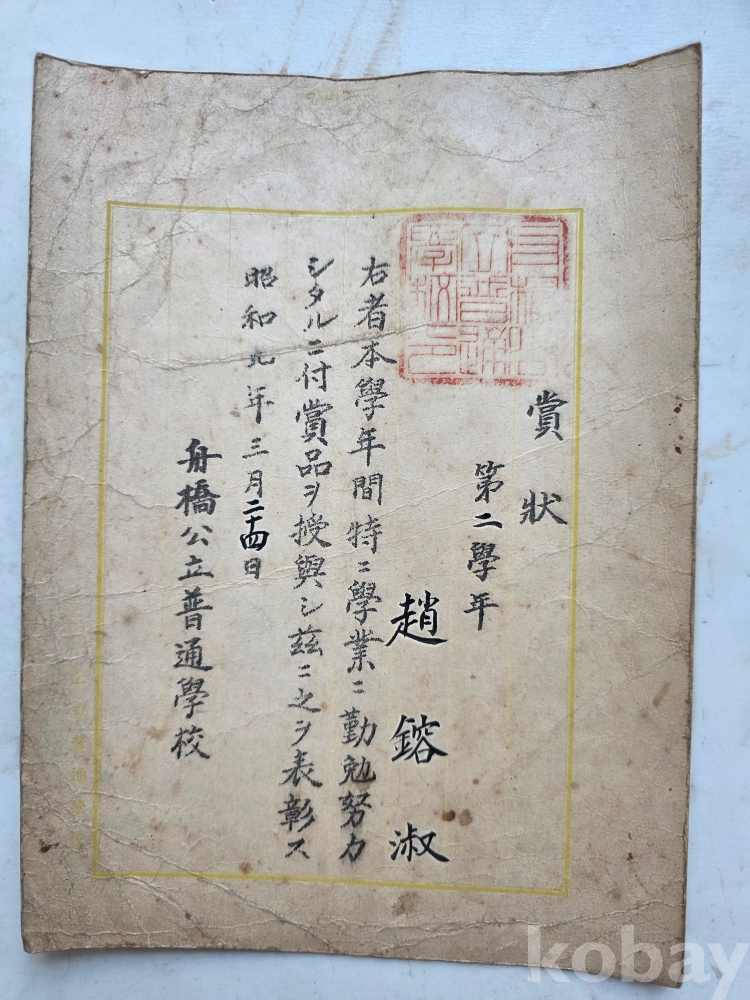 賞狀
第二學年
趙鎔淑
右者本學年間特ニ學業ニ勤勉努力
シタルニ付賞品ヲ授與シ茲ニ之ヲ表彰ス
昭和九年三月二十四日
舟橋公立普通學校
kobay